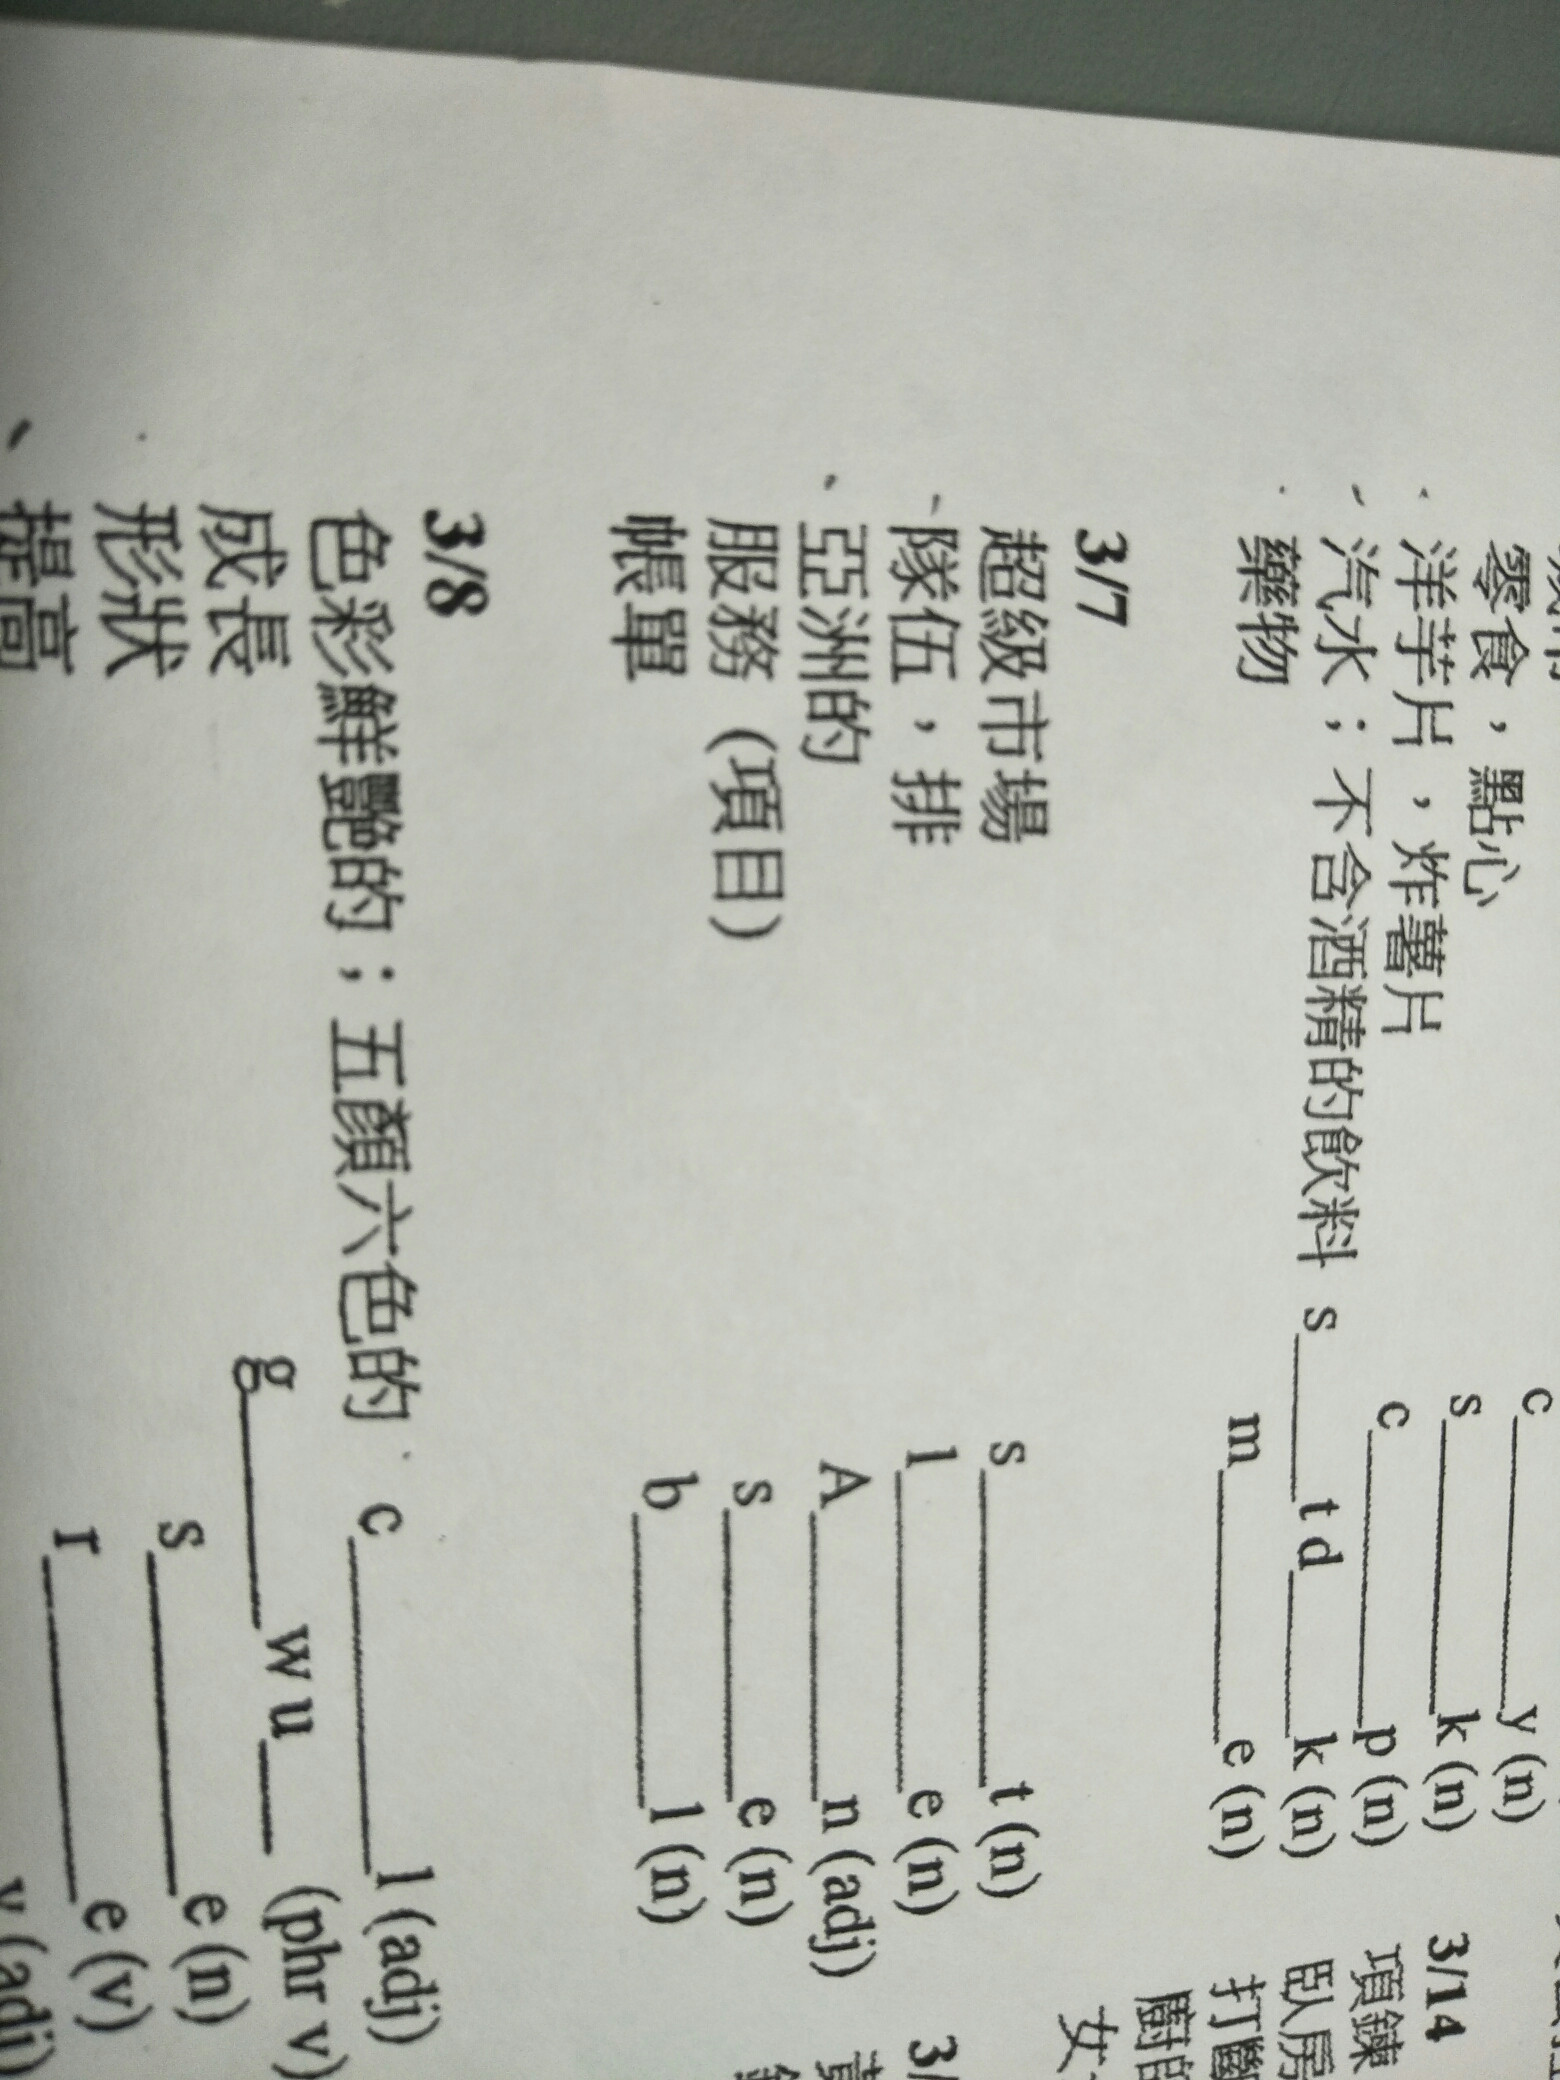 c______y (n)
零食，點心 s______k (n)
洋芋片，炸薯片 c______p (n)
汽水；不含酒精的飲料 s____t d____k (n)
藥物 m______e (n)
3/7
超級市場 s______t (n)
隊伍，排 l______e (n)
亞洲的 A______n (adj)
服務（項目） s______e (n)
帳單 b______l (n)
3/8
色彩鮮艷的；五顏六色的 c______l (adj)
成長 g____w u__ (phr v)
形狀 s______e (n)
提高 r______e (v)
y (adj)
3/14
項鍊
臥房
打斷
廚
女
3/